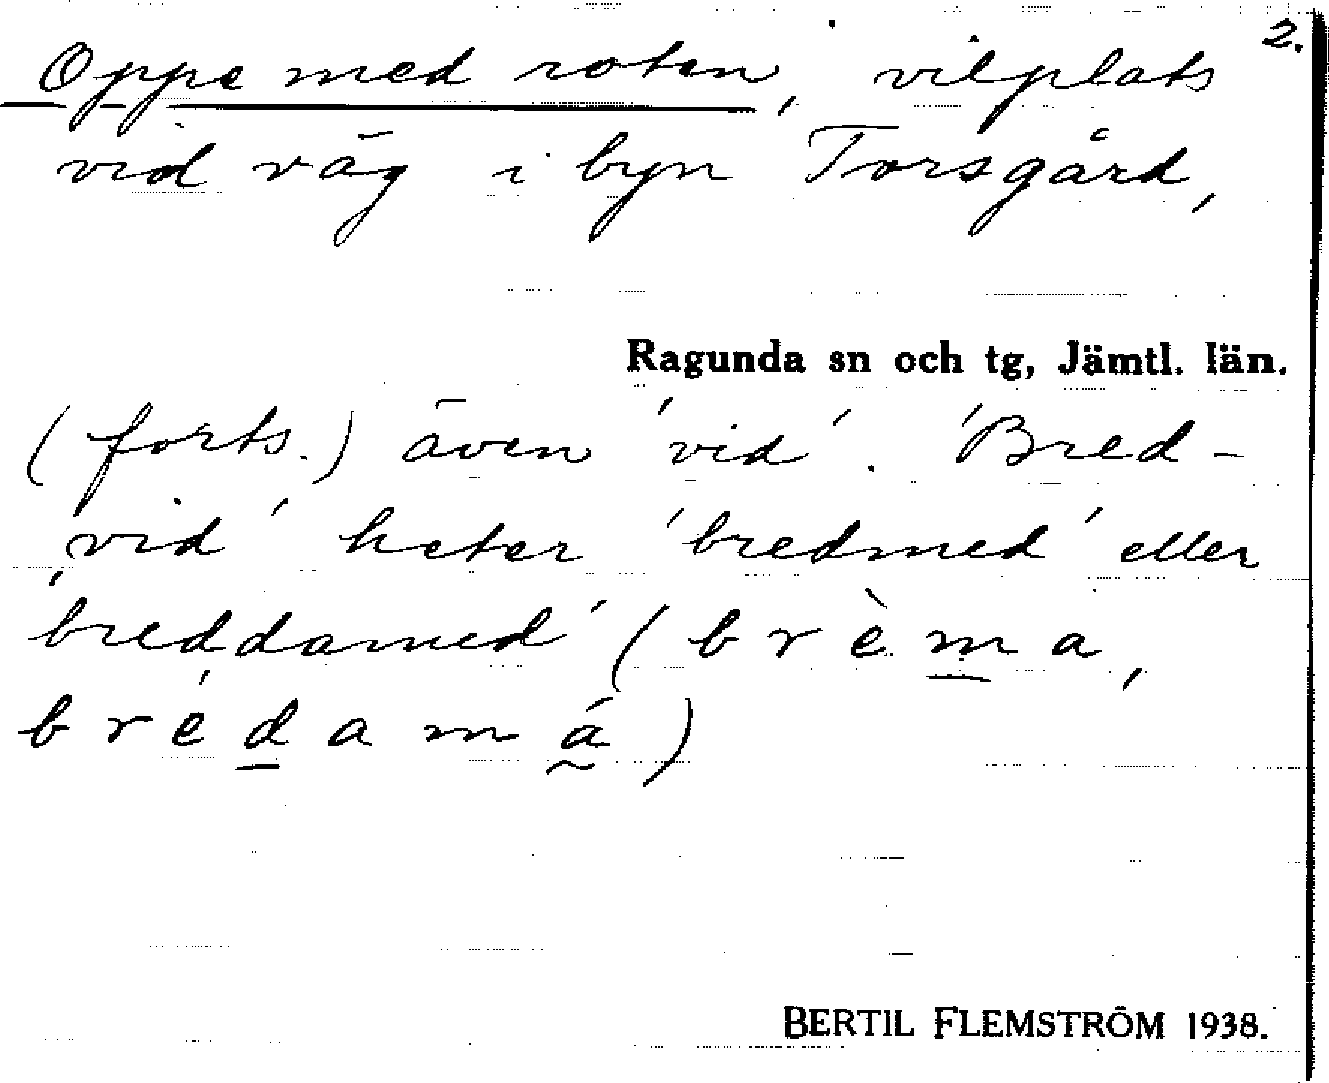 2.
Oppe med roten, vilplats
vid väg i byn Torsgård,
Ragunda sn och tg, Jämtl. län.
(forts.) även 'vid'. 'Bred-
vid' heter 'bredmed' eller
'breddamed' (brèma,
brédamá)
BERTIL FLEMSTRÖM 1938.